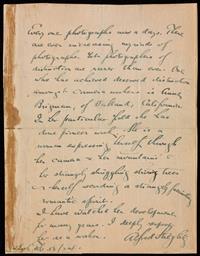 Every one photographs now a days. There
are ever increasing myriads of
photographs. Yet photographers of
distinction are rarer than ever. One
who has achieved deserved distinction
amongst camera workers is Annie
Brigman, of Oakland, California.
In her particular field she has
done pioneer work. She is a
woman expressing herself through
her camera & her mountains &
her strangely struggling strong trees
& herself sounding a strangely
romantic spirit.
I have watched her development
for many years. I deeply respect
her as a worker.
Alfred Stieglitz